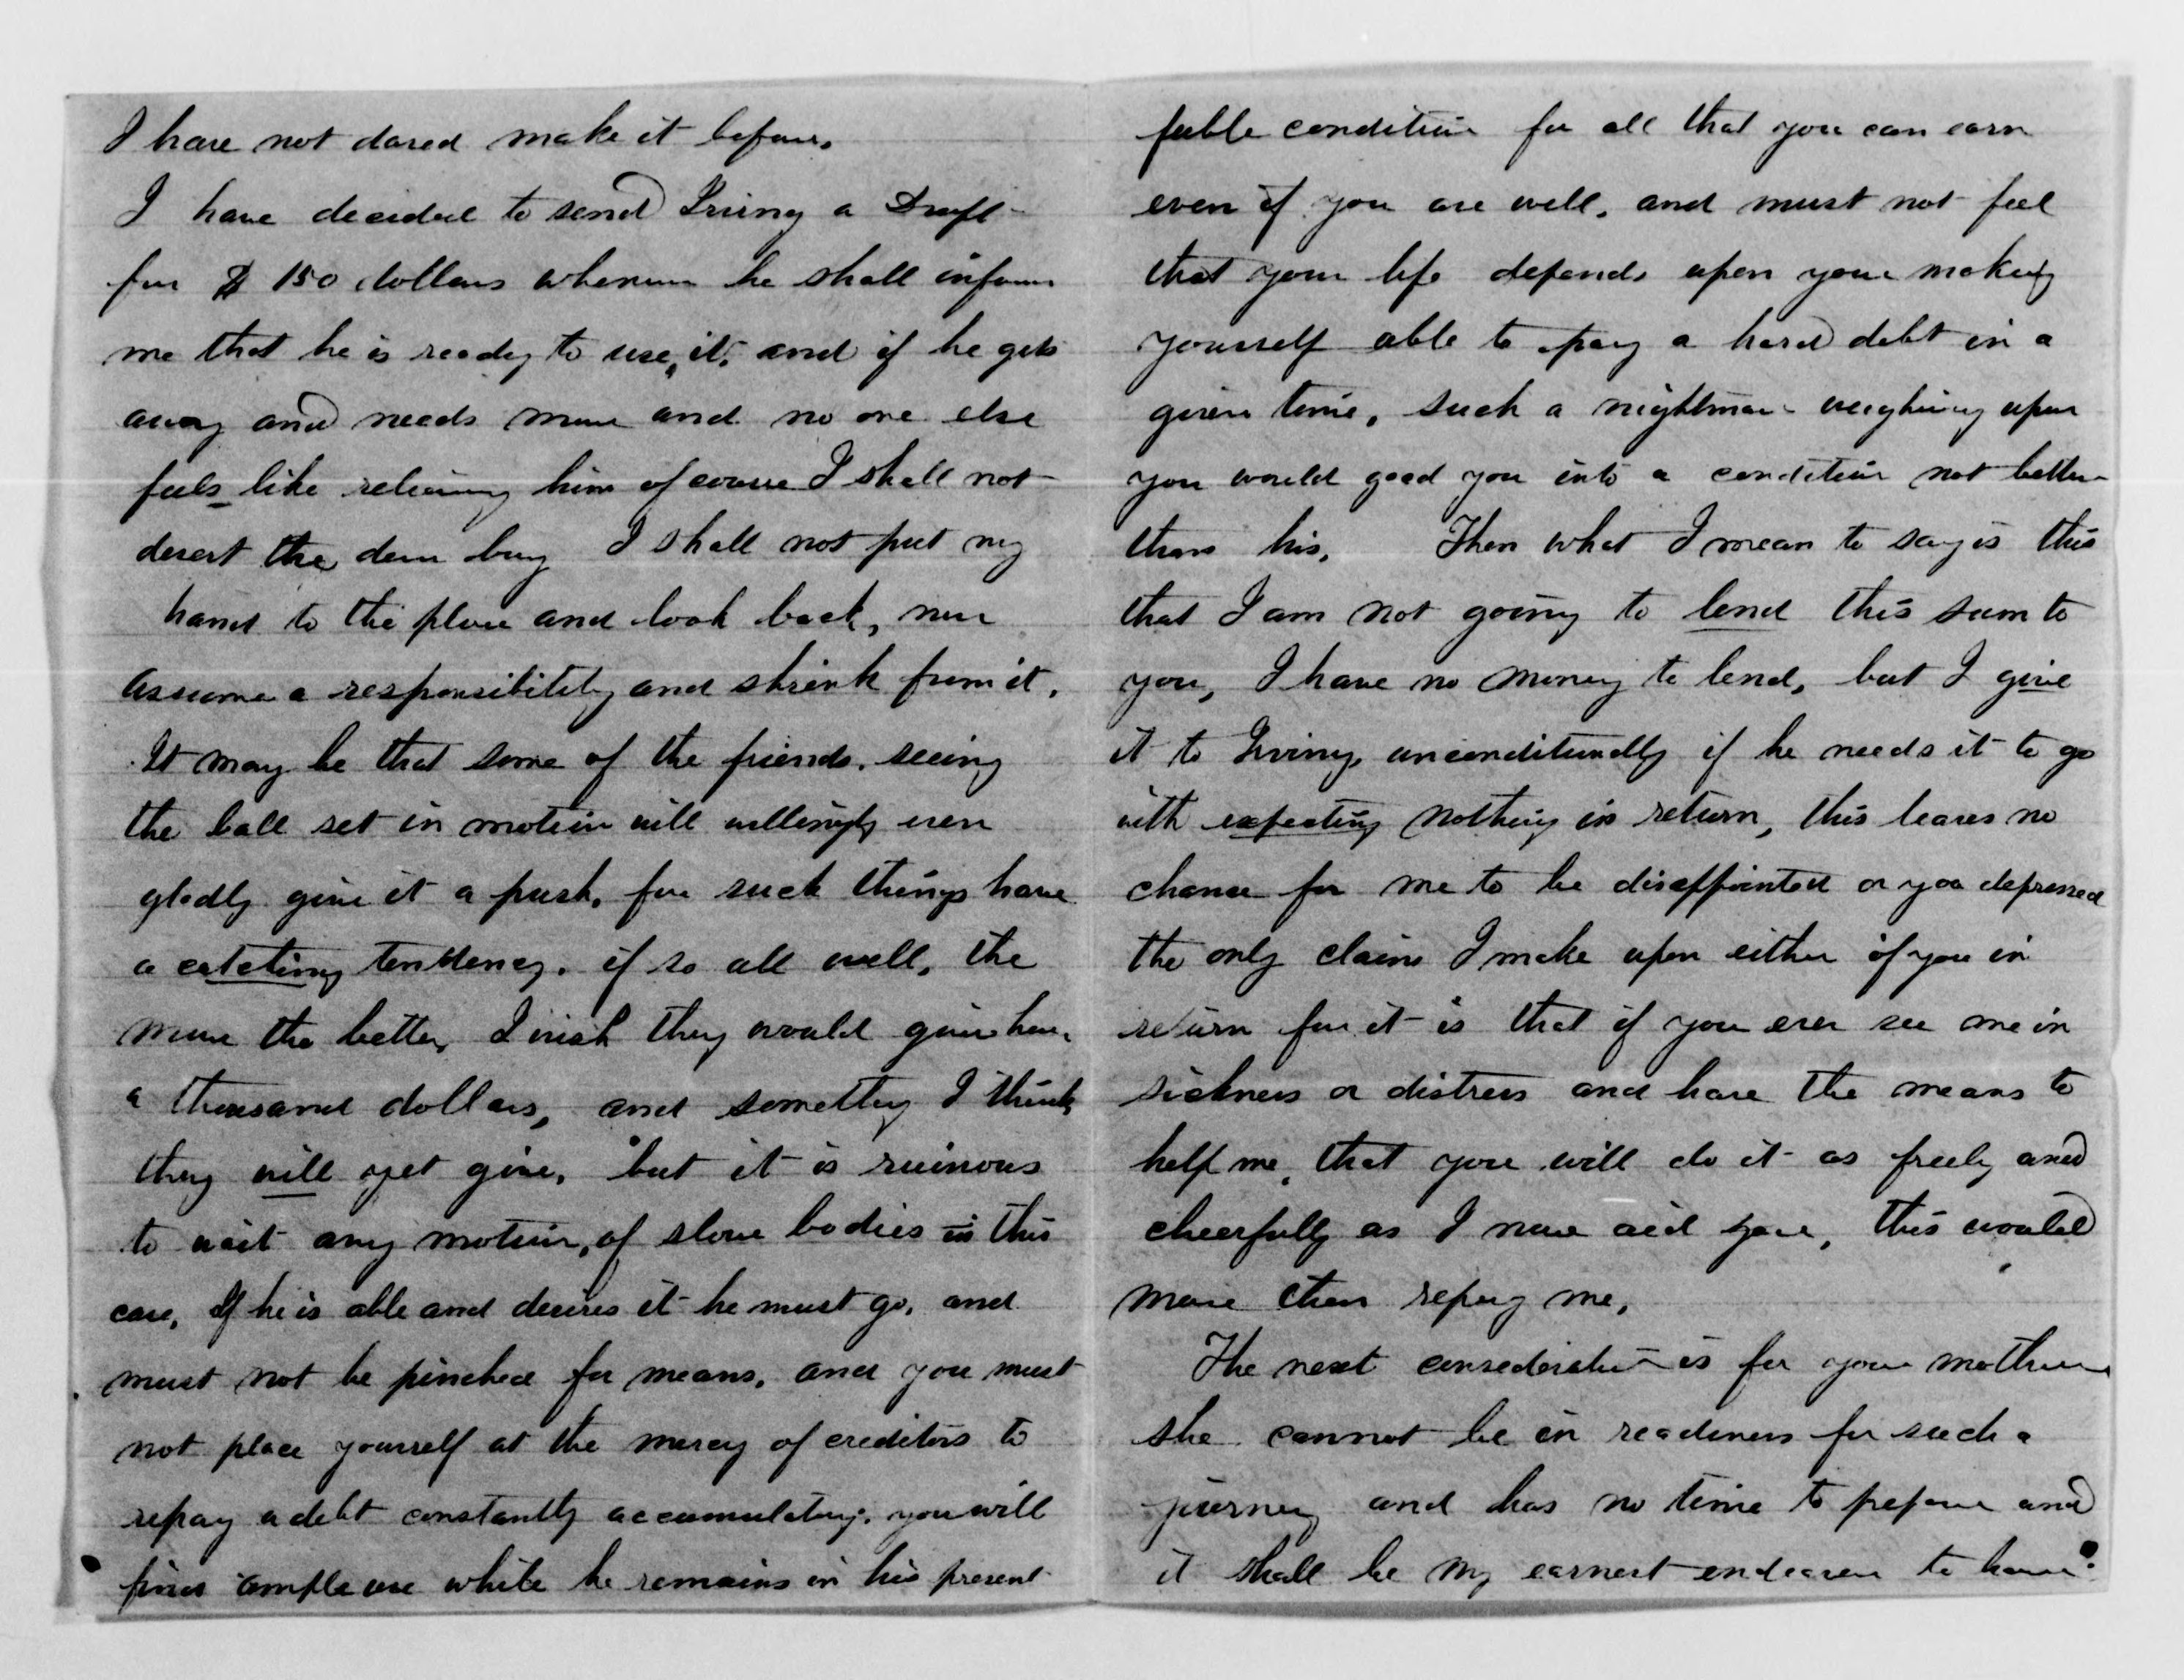 I have not dared make it before.
I have decided to send Irving a Draft
for $ 150 dollars whenever he shall inform
me that he is ready to use it, and if he gets
away and needs more and no one else
feels like relieving him of course I shall not
desert the dear boy I shall not put my
hand to the plow and look back, nor
assume a responsibility and shrink from it.
It may be that some of the friends, seeing
the ball set in motion will willingly even
gladly give it a push, for such things have
a catching tendency. if so all well, the
more the better, I wish they would give him
a thousand dollars, and something I think
they will yet give, but it is ruinous
to wait any motion, of slow bodies in this
case, If he is able and desires it he must go, and
must not be pinched for means, and you must
not place yourself at the mercy of creditors to
repay a debt constantly accumulating, you will
find ample use while he remains in his present
feeble condition for all that you can earn
even if you are well, and must not feel
that your life depends upon your making
yourself able to pay a hard debt in a
given time, such a nightmare weighing upon
you would goad you into a condition not better
than his. Then what I mean to say is this
that I am not going to lend this sum to
you, I have no money to lend, but I give
it to Irving, unconditionally if he needs it to go
with expecting nothing in return, this leaves no
chance for me to be disappointed or you depressed
the only claim I make upon either of you in
return for it is that if you ever see me in
sickness or distress and have the means to
help me, that you will do it as freely and
cheerfully as I now aid you, this would
more than repay me,
The next consideration is for your mother
she cannot be in readiness for such a
journey and has no time to prepare and
it shall be my earnest endeavor to have